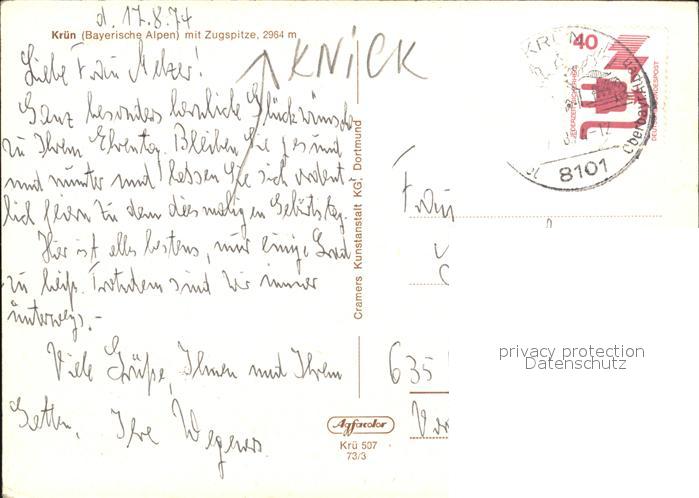 d. 17.8.74
Krün (Bayerische Alpen) mit Zugspitze, 2964 m
KNICK
Liebe Frau Melzer!
Ganz besonders herzliche Glückwünsche
zu Ihrem Ehrentag. Bleiben Sie gesund
und munter und lassen Sie sich ordent-
lich feiern zu dem diesmaligen Geburtstag.
Hier ist alles bestens, nur einige Grad
zu heiß. Trotzdem sind wir immer
unterwegs.-
Viele Grüße, Ihnen und Ihrem
Gatten, Ihre Wegeners
Cramers Kunstanstalt KG, Dortmund
Agfacolor
Krü 507
73/3
40
JEDERZEIT SICHERHEIT
DEUTSCHE BUNDESPOST
KRÜN
8101
Oberbay
Frau
635
privacy protection
Datenschutz